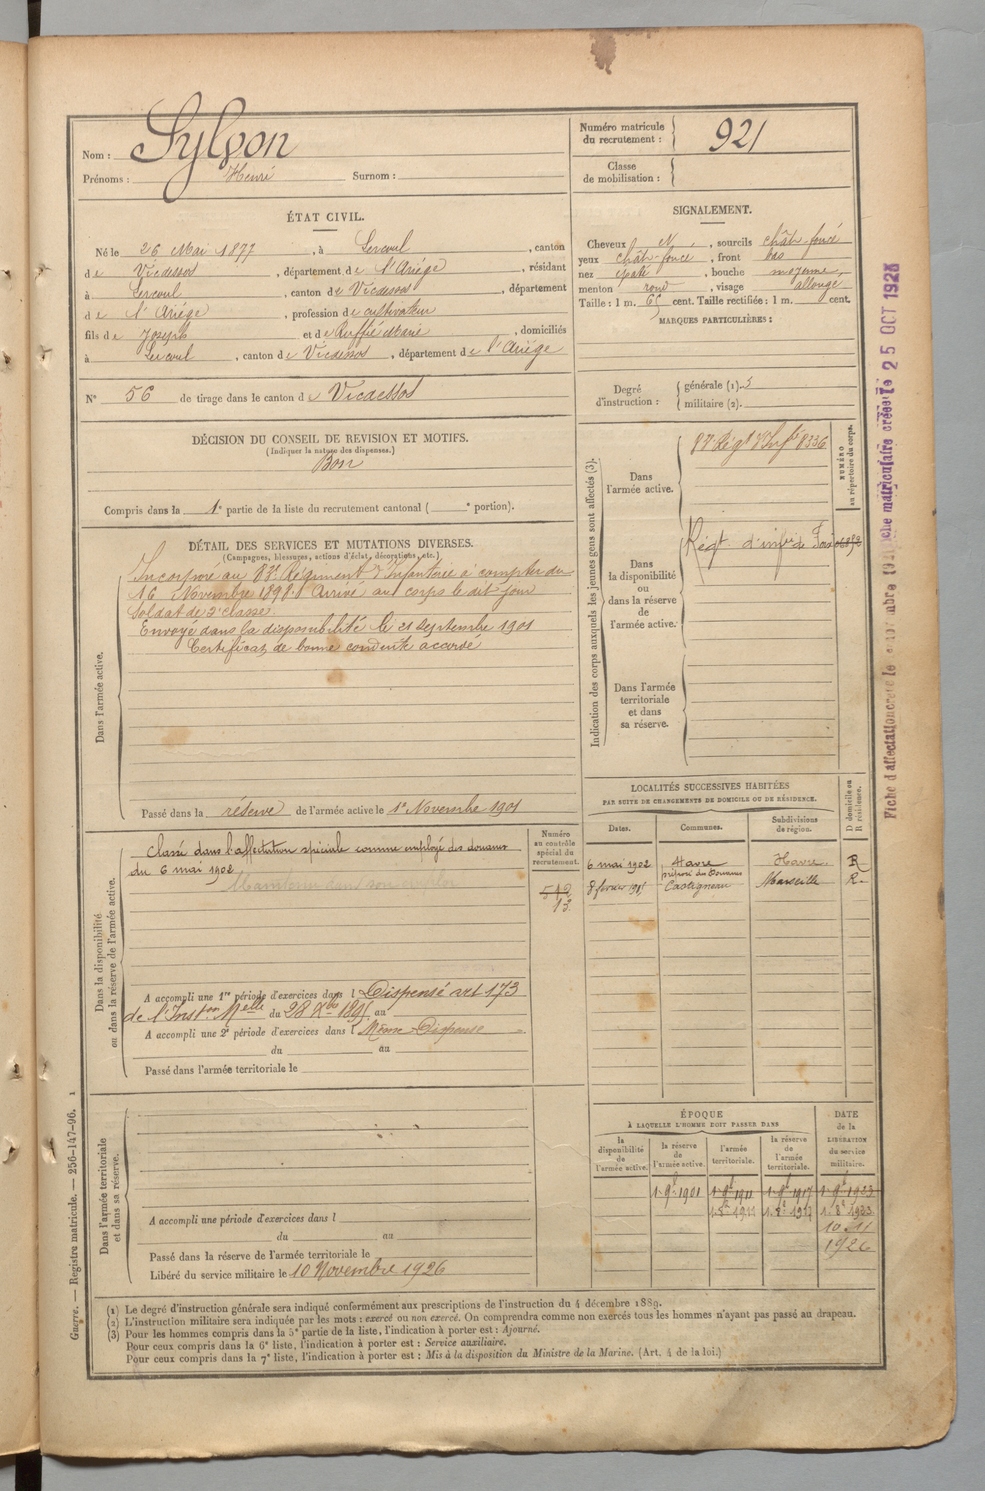 Nom : Sylvon
Prénoms : Henri Surnom :
Numéro matricule du recrutement : 921
Classe de mobilisation :
ÉTAT CIVIL.
Né le 26 Mai 1877, à Lercoul, canton
de Vicdessos, département de l'Ariège, résidant
à Lercoul, canton de Vicdessos, département
de l'Ariège, profession de cultivateur
fils de Joseph et de Ruffié Marie, domiciliés
à Lercoul, canton de Vicdessos, département de l'Ariège
N° 56 de tirage dans le canton de Vicdessos
SIGNALEMENT.
Cheveux N, sourcils chât-foncé
yeux chât-foncé, front bas
nez épaté, bouche moyenne,
menton rond, visage allongé
Taille : 1 m. 65 cent. Taille rectifiée : 1 m. cent.
MARQUES PARTICULIÈRES :
Degré d'instruction :
générale (1). 3
militaire (2).
DÉCISION DU CONSEIL DE REVISION ET MOTIFS.
(Indiquer la nature des dispenses.)
Bon
Compris dans la 1e partie de la liste du recrutement cantonal ( e portion).
DÉTAIL DES SERVICES ET MUTATIONS DIVERSES.
(Campagnes, blessures, actions d'éclat, décorations, etc.)
Dans l'armée active.
Incorporé au 83e Régiment d'Infanterie à compter du
16 Novembre 1898. Arrivé au corps le dit jour
Soldat de 2e classe.
Envoyé dans la disponibilité le 21 Septembre 1901
Certificat de bonne conduite accordé
Passé dans la réserve de l'armée active le 1er Novembre 1901
Indication des corps auxquels les jeunes gens sont affectés (3).
NUMÉRO au répertoire du corps.
Dans l'armée active.
Régt d'Infie 8336
Dans la disponibilité ou dans la réserve de l'armée active.
Régt d'infie de Foix
Dans l'armée territoriale et dans sa réserve.
Fiche matriculaire créée le 25 OCT 1923
Fiche d'affectation créée le
LOCALITÉS SUCCESSIVES HABITÉES
PAR SUITE DE CHANGEMENTS DE DOMICILE OU DE RÉSIDENCE.
Dates. Communes. Subdivisions de région. D domicile ou R résidence.
6 mai 1902 Havre Havre R
préposé des Douanes
8 février Castigneau Marseille R
Dans la disponibilité ou dans la réserve de l'armée active.
Numéro au contrôle spécial du recrutement.
Classé dans l'affectation spéciale comme employé des douanes
du 6 mai 1902
Maintenu dans son emploi
512
13
A accompli une 1re période d'exercices dans l Dispensé art 173
de l'Inston Melle du 28 Xbre 1895 au
A accompli une 2e période d'exercices dans l Même Dispense
du au
Passé dans l'armée territoriale le
Dans l'armée territoriale et dans sa réserve.
A accompli une période d'exercices dans l
du au
Passé dans la réserve de l'armée territoriale le
Libéré du service militaire le 10 Novembre 1926
ÉPOQUE
À LAQUELLE L'HOMME DOIT PASSER DANS
DATE de la LIBÉRATION du service militaire.
la disponibilité de l'armée active. la réserve de l'armée active. l'armée territoriale. la réserve de l'armée territoriale.
1. 9e 1901 1. 9e 1911 1. 9e 1917 1. 9e 1923
1. 8e 1923
10 11
1926
(1) Le degré d'instruction générale sera indiqué conformément aux prescriptions de l'instruction du 4 décembre 1889.
(2) L'instruction militaire sera indiquée par les mots : exercé ou non exercé. On comprendra comme non exercés tous les hommes n'ayant pas passé au drapeau.
(3) Pour les hommes compris dans la 5e partie de la liste, l'indication à porter est : Ajourné.
Pour ceux compris dans la 6e liste, l'indication à porter est : Service auxiliaire.
Pour ceux compris dans la 7e liste, l'indication à porter est : Mis à la disposition du Ministre de la Marine. (Art. 4 de la loi.)
Guerre. — Registre matricule. — 256-147-96. 1